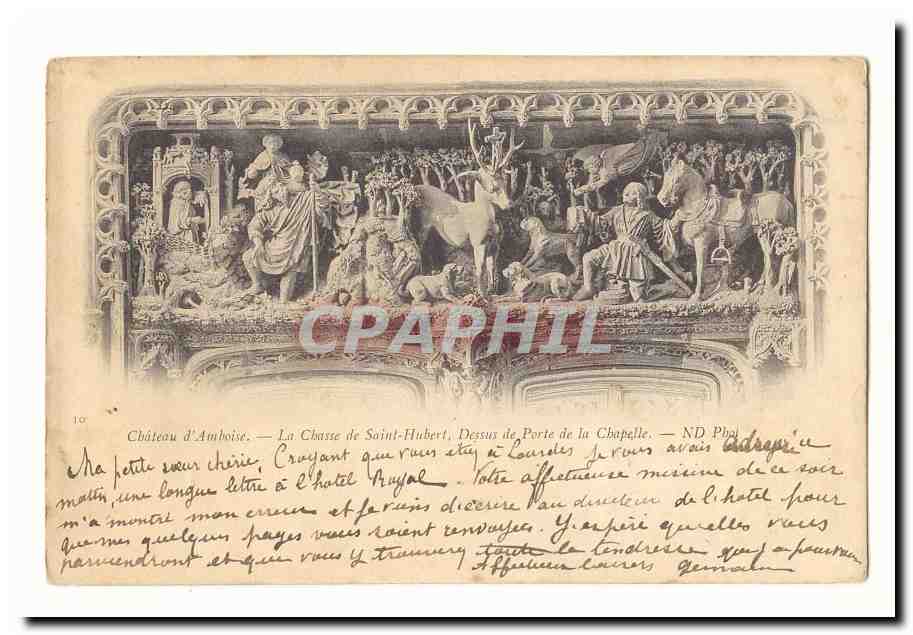 CPAPHIL
10
Château d'Amboise. — La Chasse de Saint-Hubert, Dessus de Porte de la Chapelle. — ND Phot
Ma petite sœur chérie, Croyant que vous etiez à Lourdes je vous avais adressé ce
matin, une longue lettre à l'hotel Royal. Votre affectueuse missive de ce soir
m'a montré mon erreur et je viens d'écrire au directeur de l'hotel pour
que mes quelques pages vous soient renvoyées. J'espère qu'elles vous
parviendront et que vous y trouverez toute la tendresse que
Affectueux baisers Germain